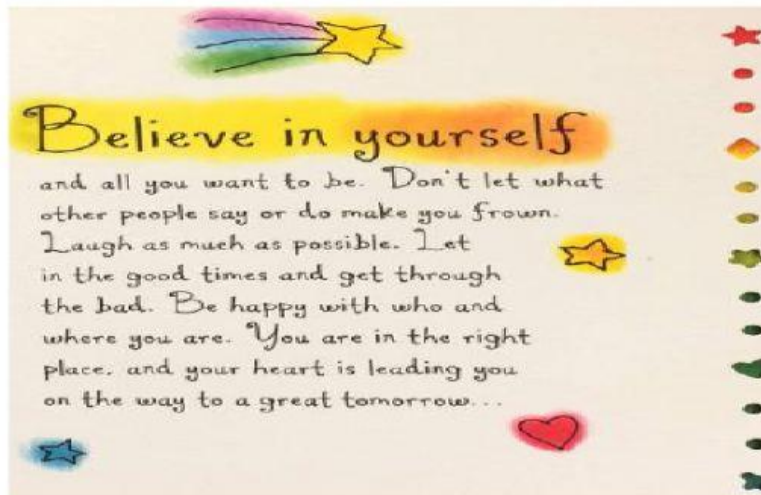 Believe in yourself
and all you want to be. Don't let what
other people say or do make you frown.
Laugh as much as possible. Let
in the good times and get through
the bad. Be happy with who and
where you are. You are in the right
place, and your heart is leading you
on the way to a great tomorrow...